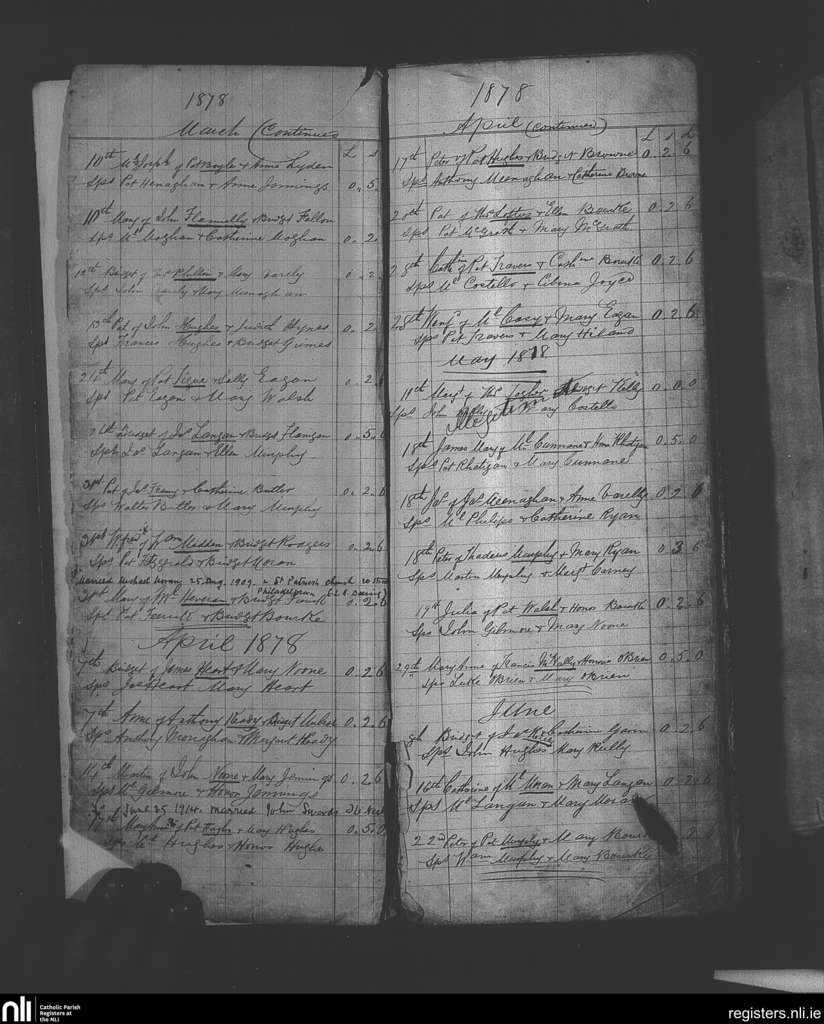 1878
March (Continued
L s
10th Wm Joseph of Pat & Anne Lyden
Sps Pat Henaghan & Anne Jennings 0.5.
10th Mary of John Flannelly & Bridget Fallon
Sps Ml Moghan & Catherine Moghan 0.2.
Bridget of & Mary Varely 0.2.
Sps John Varely & Mary Meenaghan
Pat of John Hughes & Judith Hynes 0.2.
Sps Francis Hughes & Bridget Grimes
24th Mary of Pat & Sally Eagan 0.2.6
Sps Pat Eagan & Mary Walsh
Bridget of Jas Langan & Bridget Flanigan 0.5.0
Sps Jas Langan & Ellen Murphy
31st Pat of Jas Feeny & Catherine Butler 0.2.6
Sps Walter Butler & Mary Murphy
31st of Wam Madden & Bridget Rodgers 0.2.6
Sps Pat Fitzgerald & Bridget Moran
Married Michael Horany 25 Aug. 1909. St Patrick's Church 20 Street
Philadelphia
31st Mary of & Bridget 0.2.6
Sps Pat Ferrick & Bridget Bourke
April 1878
7th Bridget of James Heart & Mary Noone 0.2.6
Sps Jas Heart Mary Heart
7th Anne of Anthony Ready & Bridget 0.2.6
Sps Anthony Monaghan & Margaret Ready
14th Martin of John Noone & Mary Jennings 0.2.6
Sps Ml Gilmore & Honor Jennings
June 25 1914. married John
of Pat & Mary Hughes 0.5.0
Sps Ml Hughes & Honor Hughes
1878
April (continued)
L s d
17th Peter of Pat Hughes & Bridget Browne 0.2.6
Sps Anthony Meenaghan & Catherine Browne
20th Pat of Thos Loftus & Ellen Bourke 0.2.6
Sps Pat McGrath & Mary McGrath
28th Cathne of Pat Travers & Cathne Bourke 0.2.6
Sps Ml Costello & Joyce
28th of Ml Casey & Mary Eagan 0.2.6
Sps Pat Travers & Mary Hiland
May 1878
11th Margt of Thos & Kelly 0.0.0
Sps John & Mary Costello
Illegitim
18th James Mary of Ml Cunnane & Hanr Rhatigan 0.5.0
Sps Pat Rhatigan & Mary Cunnane
18th Jas of Jas Meenaghan & Anne Varelly 0.2.6
Sps Ml Philips & Catherine Ryan
18th Peter of Thadeus Murphy & Mary Ryan 0.3.6
Sps Martin Murphy & Margt Carney
19th Julia of Pat Walsh & Honor Bourke 0.2.6
Sps John Gilmore & Mary Noone
29th Mary Anne of Francis McNally & Honora O'Brien 0.5.0
Sps Luke O'Brien & Mary O'Brien
June
8th Bridget of & Catherine Gavin 0.2.6
Sps John Hughes Mary Reilly
16th Catherine of Ml Moran & Mary Langan 0.2.6
Sps Ml Langan & Mary Moran
22nd Peter of Pat Murphy & Mary 2
Sps Wam Murphy & Mary Bourke
nli
Catholic Parish
Registers at
the NLI
registers.nli.ie